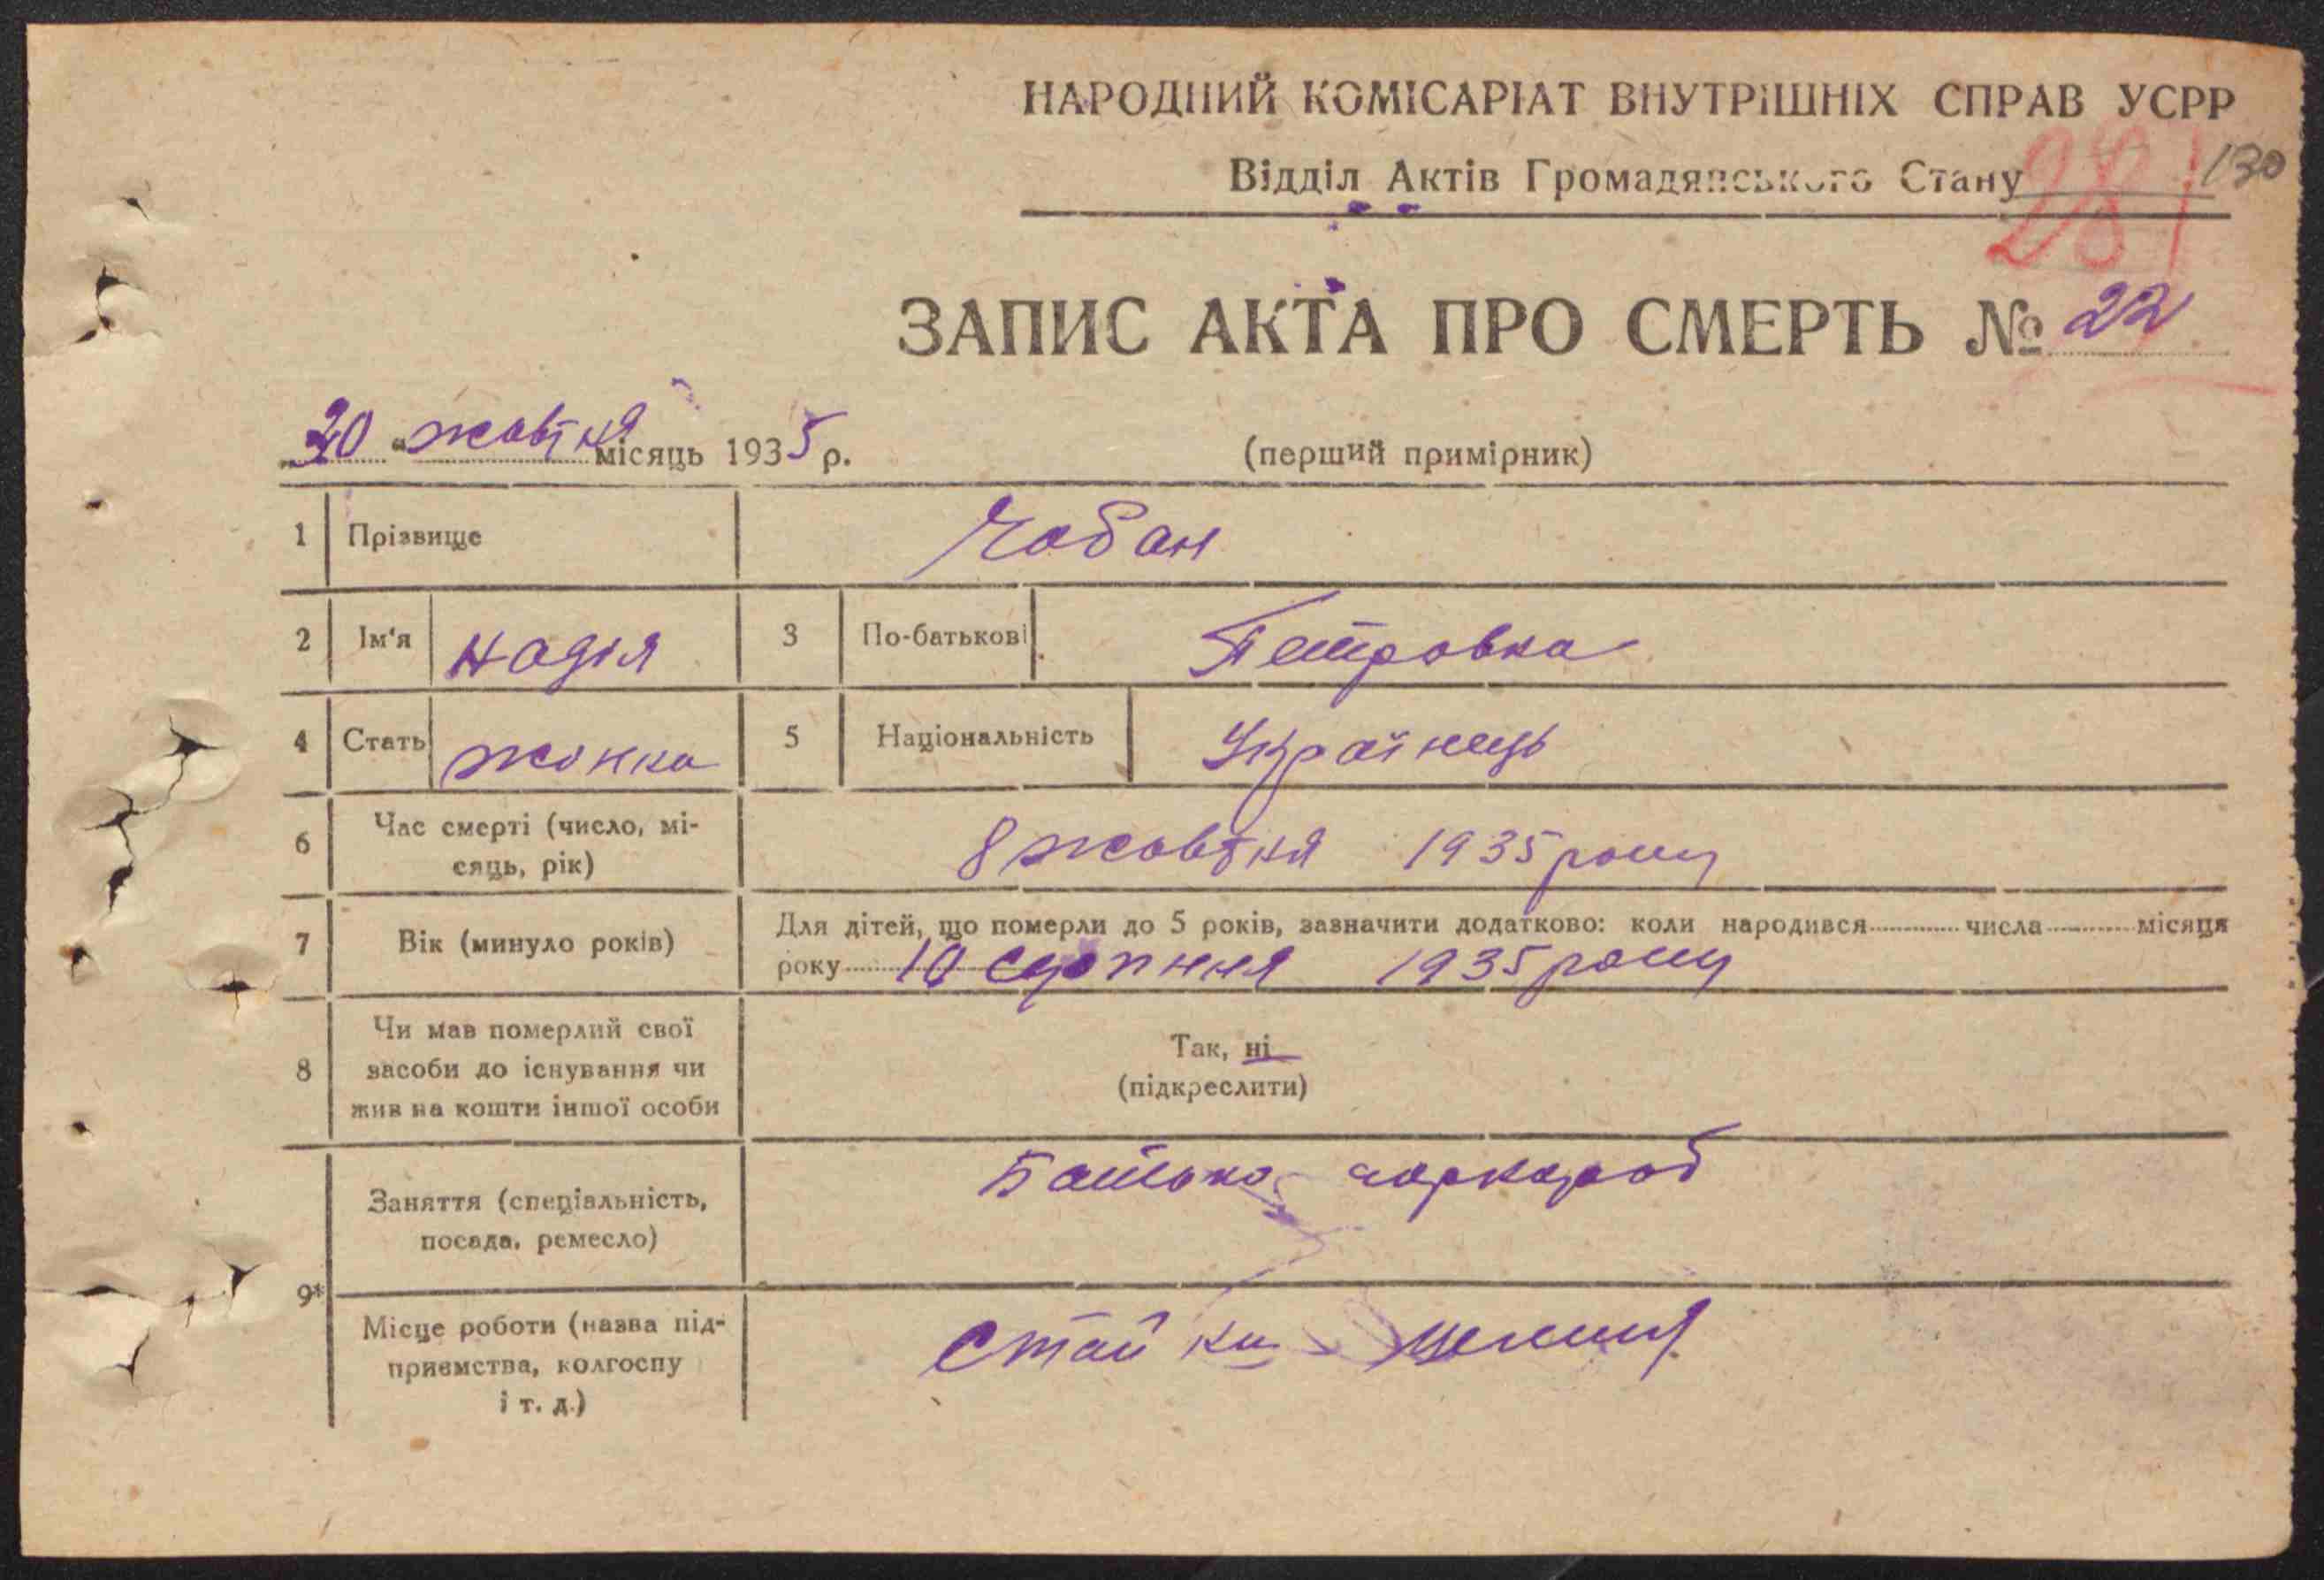 НАРОДНИЙ КОМІСАРІАТ ВНУТРІШНІХ СПРАВ УСРР
Відділ Актів Громадянського Стану
281 130
ЗАПИС АКТА ПРО СМЕРТЬ № 22
„20“ жовтня місяць 1935 р. (перший примірник)
1 Прізвище Чобан
2 Ім'я Надія 3 По-батькові Петровна
4 Стать жінка 5 Національність Українець
6 Час смерті (число, мі-
сяць, рік) 8 жовтня 1935 року
7 Вік (минуло років) Для дітей, що померли до 5 років, зазначити додатково: коли народився числа місяця
року 10 серпння 1935 року
8 Чи мав померлий свої
засоби до існування чи
жив на кошти іншої особи
Так, ні
(підкреслити)
9* Заняття (спеціальність,
посада, ремесло)
Батько чоркороб
Місце роботи (назва під-
приємства, колгоспу
і т. д.)